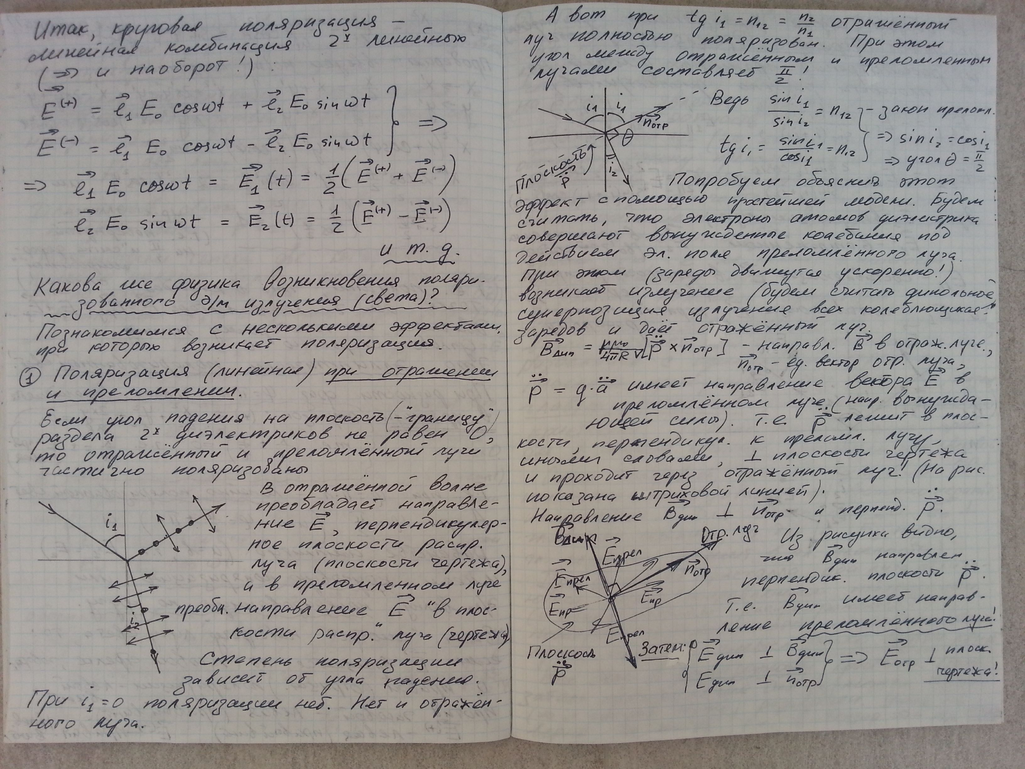 Итак, круговая поляризация –
линейная комбинация 2ˣ линейных
(⇒ и наоборот!) :
E⃗⁽⁺⁾ = e⃗₁ E₀ cosωt + e⃗₂ E₀ sin ωt
E⃗⁽⁻⁾ = e⃗₁ E₀ cosωt − e⃗₂ E₀ sin ωt } ⇒
⇒ e⃗₁ E₀ cosωt = E⃗₁(t) = ½(E⃗⁽⁺⁾ + E⃗⁽⁻⁾)
e⃗₂ E₀ sin ωt = E⃗₂(t) = ½(E⃗⁽⁺⁾ − E⃗⁽⁻⁾)
и т. д.
Какова же физика возникновения поляри-
зованного э/м излучения (света)?
Познакомимся с несколькими эффектами,
при которых возникает поляризация.
① Поляризация (линейная) при отражении
и преломлении.
Если угол падения на плоскость (–"границу")
раздела 2ˣ диэлектриков не равен 0,
то отражённый и преломлённый лучи
частично поляризованы
В отражённой волне
преобладает направле-
ние E⃗, перпендикуляр-
ное плоскости распр.
луча (плоскости чертежа),
а в преломленном луче
преобл. направление E⃗ "в плос-
кости распр." луча (чертежа)
i₁
i₂
Степень поляризации
зависит от угла падения.
При i₁=0 поляризации нет. Нет и отражён-
ного луча.
А вот при tg i₁ = n₁₂ = n₂/n₁ отражённый
луч полностью поляризован. При этом
угол между отражённым и преломленным
лучами составляет π/2!
i₁ i₁ n⃗отр θ i₂
Плоскость p⃗̈
Ведь sin i₁/sin i₂ = n₁₂ – закон преломл.
tg i₁ = sin i₁/cos i₁ = n₁₂ ⇒ sin i₂ = cos i₁
⇒ угол θ = π/2
Попробуем объяснить этот
эффект с помощью простейшей модели. Будем
считать, что электроны атомов диэлектрика
совершают вынужденные колебания под
действием эл. поля преломлённого луча.
При этом (заряды движутся ускоренно!)
возникает излучение (будем считать дипольное),
суперпозиция излучение всех колеблющихся
зарядов и даёт отражённый луч.
[p⃗̈ × n⃗отр] – направл. B⃗ в отраж. луче,
n⃗отр – ед. вектор отр. луча,
p⃗̈ = q·a⃗ имеет направление вектора E⃗ в
преломлённом луче (напр. вынужда-
ющей силы). Т.е. p⃗̈ лежит в плос-
кости, перпендикул. к преломл. лучу,
иными словами, ⊥ плоскости чертежа
и проходит через отражённый луч! (На рис.
показана штриховой линией).
Направление B⃗дип ⊥ n⃗отр и перпенд. p⃗̈.
B⃗дип
Отр. луч
E⃗прел
n⃗отр
E⃗прел
E⃗пр
E⃗пр
Плоскость
p⃗̈
Из рисунка видно,
что B⃗дип направлен
перпендик. плоскости p⃗̈.
Т.е. B⃗дип имеет направ-
ление преломлённого луча!
Затем: { E⃗дип ⊥ B⃗дип
E⃗дип ⊥ n⃗отр } ⇒ E⃗отр ⊥ плоск.
чертежа!